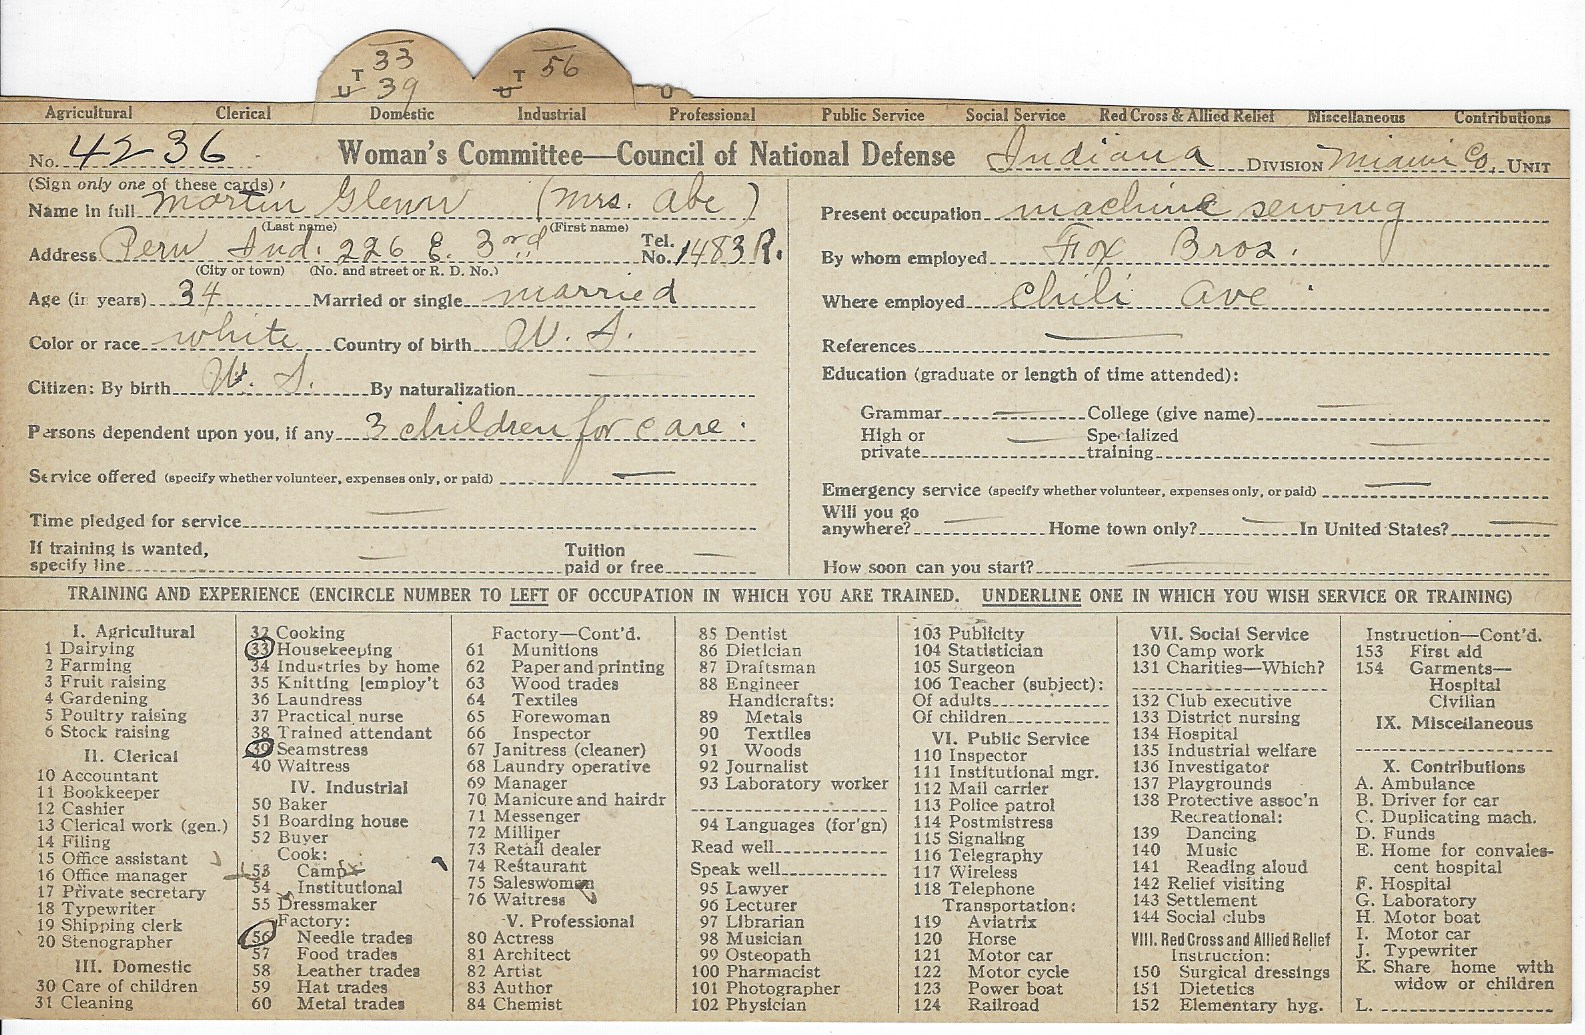 33
T
U 39
T 56
U
U
Agricultural Clerical Domestic Industrial Professional Public Service Social Service Red Cross & Allied Relief Miscellaneous Contributions
No. 4236 Woman's Committee—Council of National Defense Indiana DIVISION Miami Co. UNIT
(Sign only one of these cards)
Name in full Martin Glenn (Mrs. Abe)
(Last name) (First name)
Address Peru Ind. 226 E. 3rd Tel. No. 1483 R.
(City or town) (No. and street or R. D. No.)
Age (in years) 34 Married or single married
Color or race white Country of birth U. S.
Citizen: By birth U. S. By naturalization
Persons dependent upon you, if any 3 children for care.
Service offered (specify whether volunteer, expenses only, or paid)
Time pledged for service
If training is wanted, specify line Tuition paid or free
Present occupation machine sewing
By whom employed Fox Bros.
Where employed Chili Ave
References
Education (graduate or length of time attended):
Grammar College (give name)
High or private Specialized training
Emergency service (specify whether volunteer, expenses only, or paid)
Will you go anywhere? Home town only? In United States?
How soon can you start?
TRAINING AND EXPERIENCE (ENCIRCLE NUMBER TO LEFT OF OCCUPATION IN WHICH YOU ARE TRAINED. UNDERLINE ONE IN WHICH YOU WISH SERVICE OR TRAINING)
I. Agricultural
1 Dairying
2 Farming
3 Fruit raising
4 Gardening
5 Poultry raising
6 Stock raising
II. Clerical
10 Accountant
11 Bookkeeper
12 Cashier
13 Clerical work (gen.)
14 Filing
15 Office assistant
16 Office manager
17 Private secretary
18 Typewriter
19 Shipping clerk
20 Stenographer
III. Domestic
30 Care of children
31 Cleaning
32 Cooking
33 Housekeeping
34 Industries by home
35 Knitting [employ't
36 Laundress
37 Practical nurse
38 Trained attendant
39 Seamstress
40 Waitress
IV. Industrial
50 Baker
51 Boarding house
52 Buyer
Cook:
53 Camp
54 Institutional
55 Dressmaker
Factory:
56 Needle trades
57 Food trades
58 Leather trades
59 Hat trades
60 Metal trades
Factory—Cont'd.
61 Munitions
62 Paper and printing
63 Wood trades
64 Textiles
65 Forewoman
66 Inspector
67 Janitress (cleaner)
68 Laundry operative
69 Manager
70 Manicure and hairdr
71 Messenger
72 Milliner
73 Retail dealer
74 Restaurant
75 Saleswoman
76 Waitress
V. Professional
80 Actress
81 Architect
82 Artist
83 Author
84 Chemist
85 Dentist
86 Dietician
87 Draftsman
88 Engineer
Handicrafts:
89 Metals
90 Textiles
91 Woods
92 Journalist
93 Laboratory worker
94 Languages (for'gn)
Read well
Speak well
95 Lawyer
96 Lecturer
97 Librarian
98 Musician
99 Osteopath
100 Pharmacist
101 Photographer
102 Physician
103 Publicity
104 Statistician
105 Surgeon
106 Teacher (subject):
Of adults
Of children
VI. Public Service
110 Inspector
111 Institutional mgr.
112 Mail carrier
113 Police patrol
114 Postmistress
115 Signaling
116 Telegraphy
117 Wireless
118 Telephone
Transportation:
119 Aviatrix
120 Horse
121 Motor car
122 Motor cycle
123 Power boat
124 Railroad
VII. Social Service
130 Camp work
131 Charities—Which?
132 Club executive
133 District nursing
134 Hospital
135 Industrial welfare
136 Investigator
137 Playgrounds
138 Protective assoc'n
Recreational:
139 Dancing
140 Music
141 Reading aloud
142 Relief visiting
143 Settlement
144 Social clubs
VIII. Red Cross and Allied Relief
Instruction:
150 Surgical dressings
151 Dietetics
152 Elementary hyg.
Instruction—Cont'd.
153 First aid
154 Garments—
Hospital
Civilian
IX. Miscellaneous
X. Contributions
A. Ambulance
B. Driver for car
C. Duplicating mach.
D. Funds
E. Home for convales-
cent hospital
F. Hospital
G. Laboratory
H. Motor boat
I. Motor car
J. Typewriter
K. Share home with
widow or children
L.